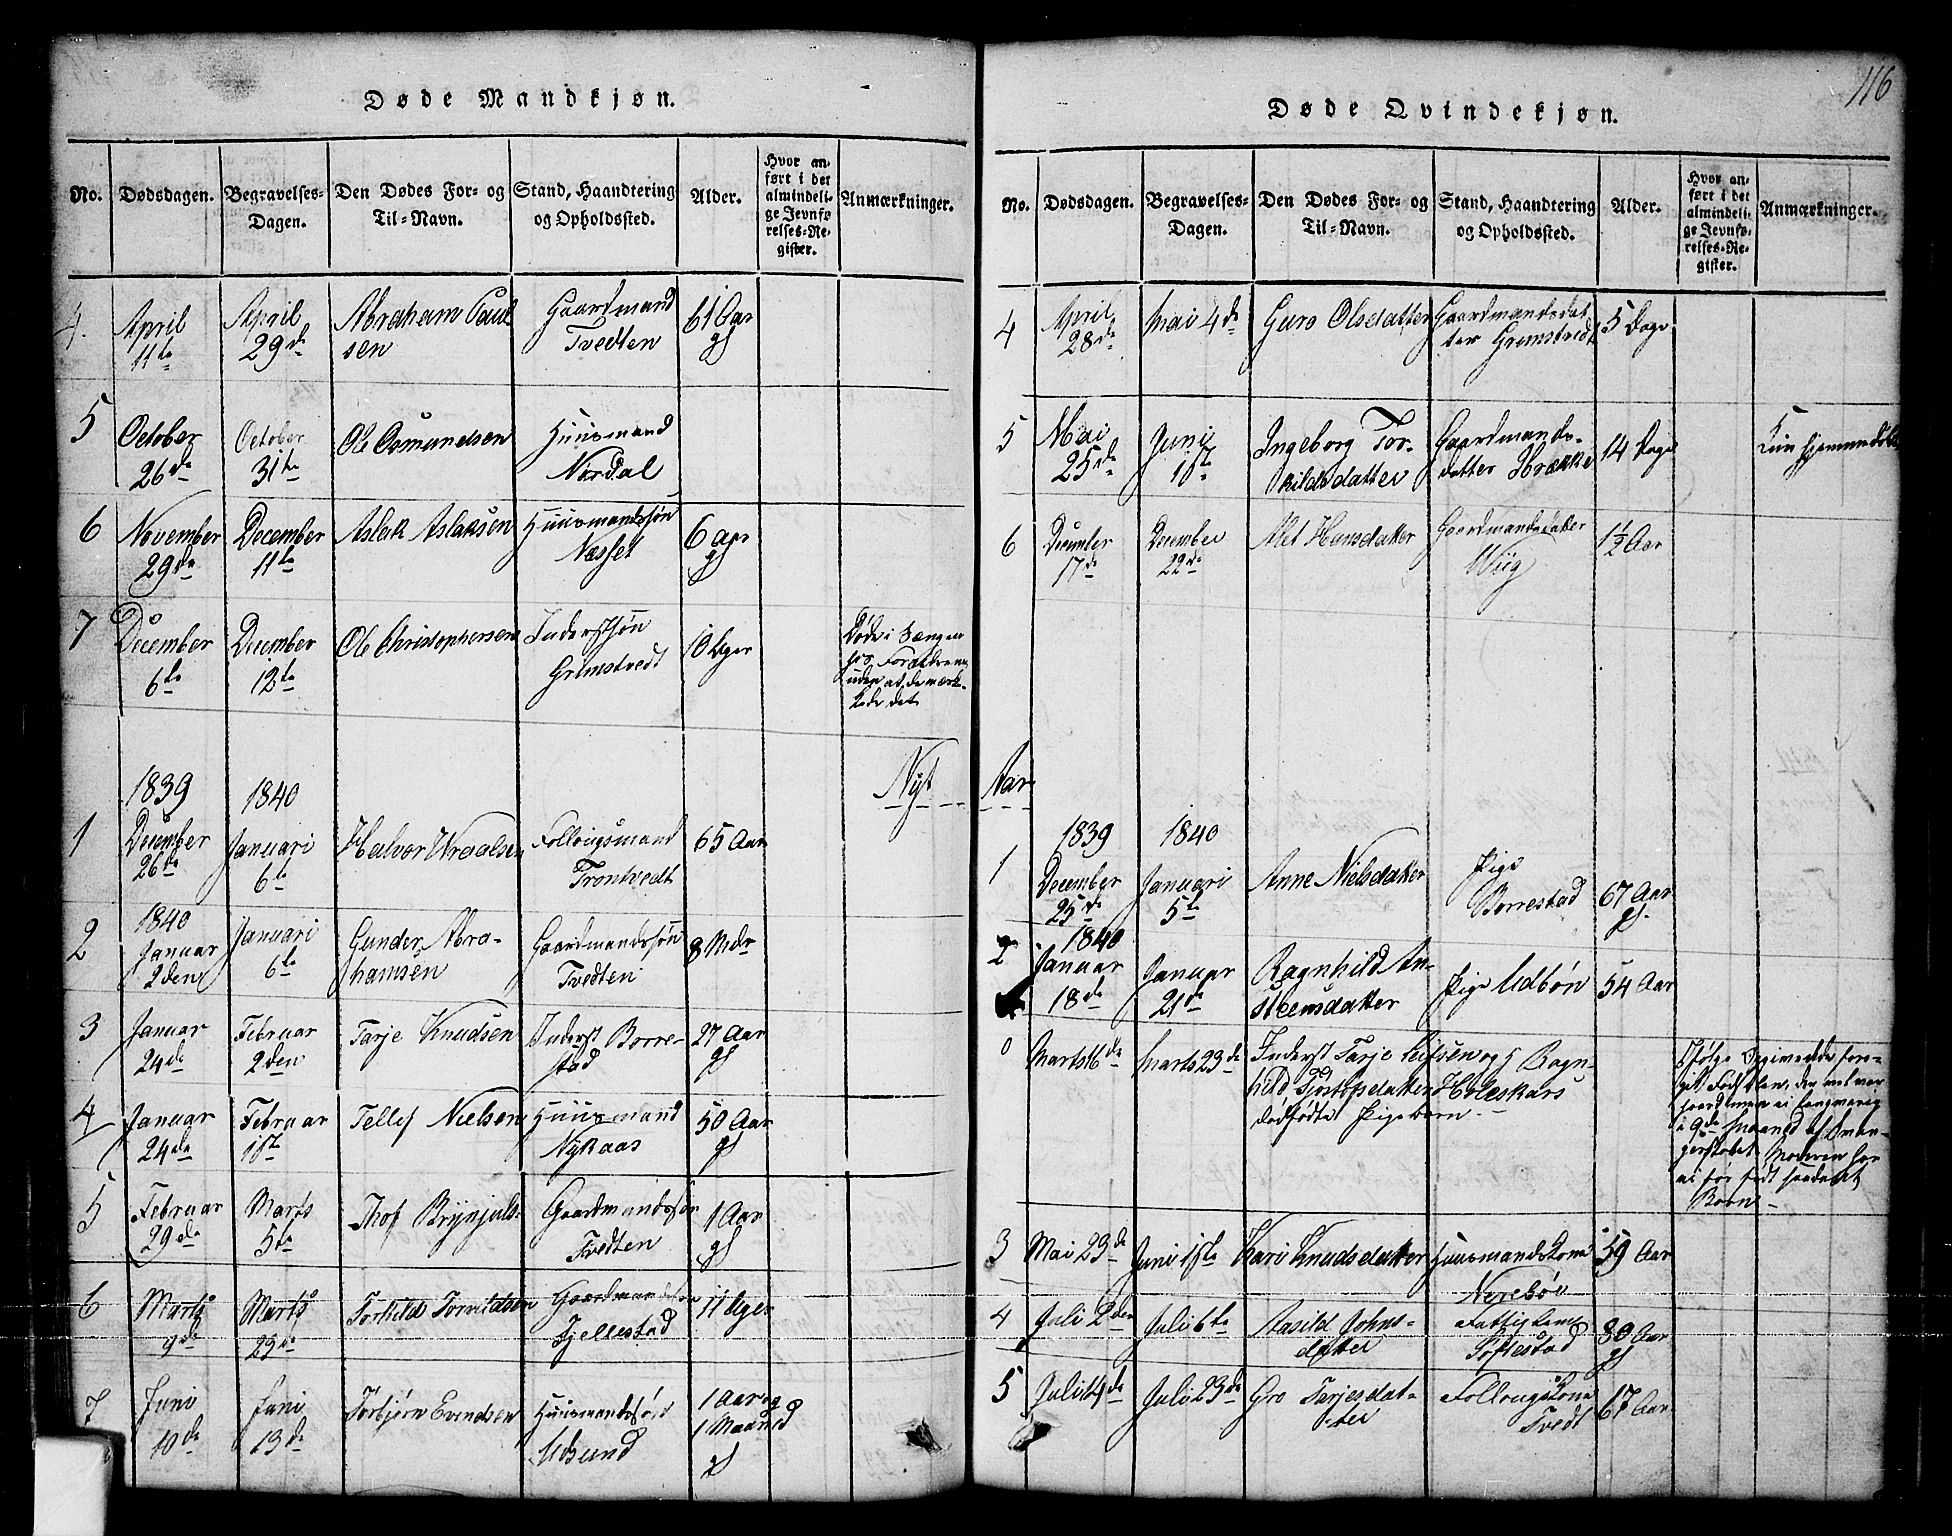 116
Døde Mandkjøn.
No.
Dødsdagen.
Begravelses-
Dagen.
Den Dødes For- og
Til-Navn.
Stand, Haandtering
og Opholdssted.
Alder.
Hvor an-
ført i det
almindeli-
ge Jevnfø
relses-Re-
gister.
Anmærkninger.
4.
April
11te
April
29de
Abraham Paul
sen
Gaardmand
Tvedten
61 Aar
gl
5
October
26de
October
31te
Ole Osmundsen
Huusmand
Nordal
6
November
29de
December
11te
Aslak Aslaksen
Huusmandssøn
Næsset
6 Aar
gl
7
December
6te
December
12te
Ole Christophersen
Inderstsøn
Grimstvedt
10 Uger
Døde i Sængen
hos Forældrene
uden at de mærk-
kede det
Nyt Aar
1
1839
December
26de
1840
Januari
6te
Halvor Wraalsen
Follougsmand
Trontvedt
65 Aar
2
1840
Januar
2den
Januari
6te
Gunder Abra-
hamsen
Gaardmandssøn
Tvedten
8 Mdr
3
Januar
24de
Februar
2den
Tarje Knudsen
Inderst Borre-
stad
27 Aar
gl
4
Januar
24de
Februar
1ste
Tellef Nielsen
Huusmand
Nykaas
50 Aar
gl
5
Februar
29de
Marts
5te
Thof Brynjuls-
Gaardmandssøn
Tvedten
1 Aar
gl
6
Marts
9de
Marts
23de
Torkild Torkildsen
Gaardmandssøn
Fjellestad
11 Uger
7
Juni
10de
Juni
13de
Torbjørn Evendsen
Huusmandssøn
Udsund
1 Aar og
1 Maaned
gl
Døde Qvindekjøn.
No.
Dødsdagen.
Begravelses-
Dagen.
Den Dødes For- og
Til-Navn.
Stand, Haandtering
og Opholdssted.
Alder.
Hvor an-
ført i det
almindeli-
ge Jevnfø-
relses-Re-
gister.
Anmærkninger.
4
April
28de
Mai 4de
Guro Olsdatter
Gaardmandsdat
ter Grimstvedt
5 Dage
5
Mai
25de
Juni
1ste
Ingeborg Tor-
kildsdatter
Gaardmands-
datter Brække
14 Dage
Kun hjemmedøbt
6
December
17de
December
22de
Alet Hansdatter
Gaardmandsdatter
Wiig
1½ Aar
1
1839
December
25de
1840
Januari
5te
Anne Nielsdatter
Pige
Borrestad
67 Aar
gl.
2
1840
Januar
18de
Januar
21de
Ragnhild An-
steensdatter
Pige Udbøn
54 Aar
0
Marts 16de
Marts 23de
Inderst Tarje Leifsen og Ragn-
hild Tjostofsdatter Holeskars
dødfødte Pigebarn.
Ifølge Opgivende fore-
i 9de Maaned af Svan-
gerskabet Moderen har
ei før født saadant
Barn
3
Mai 23de
Juni 1ste
Kari Knudsdatter
Huusmandskone
Nerebøe
59 Aar
4
Juli 2den
Juli 6te
Aasild Johns-
datter
Fattiglem
Toftestad
80 Aar
gl
5
Juli 14de
Juli 23de
Gro Tarjesdat-
ter
Follougskone
Tvedt
67 Aar